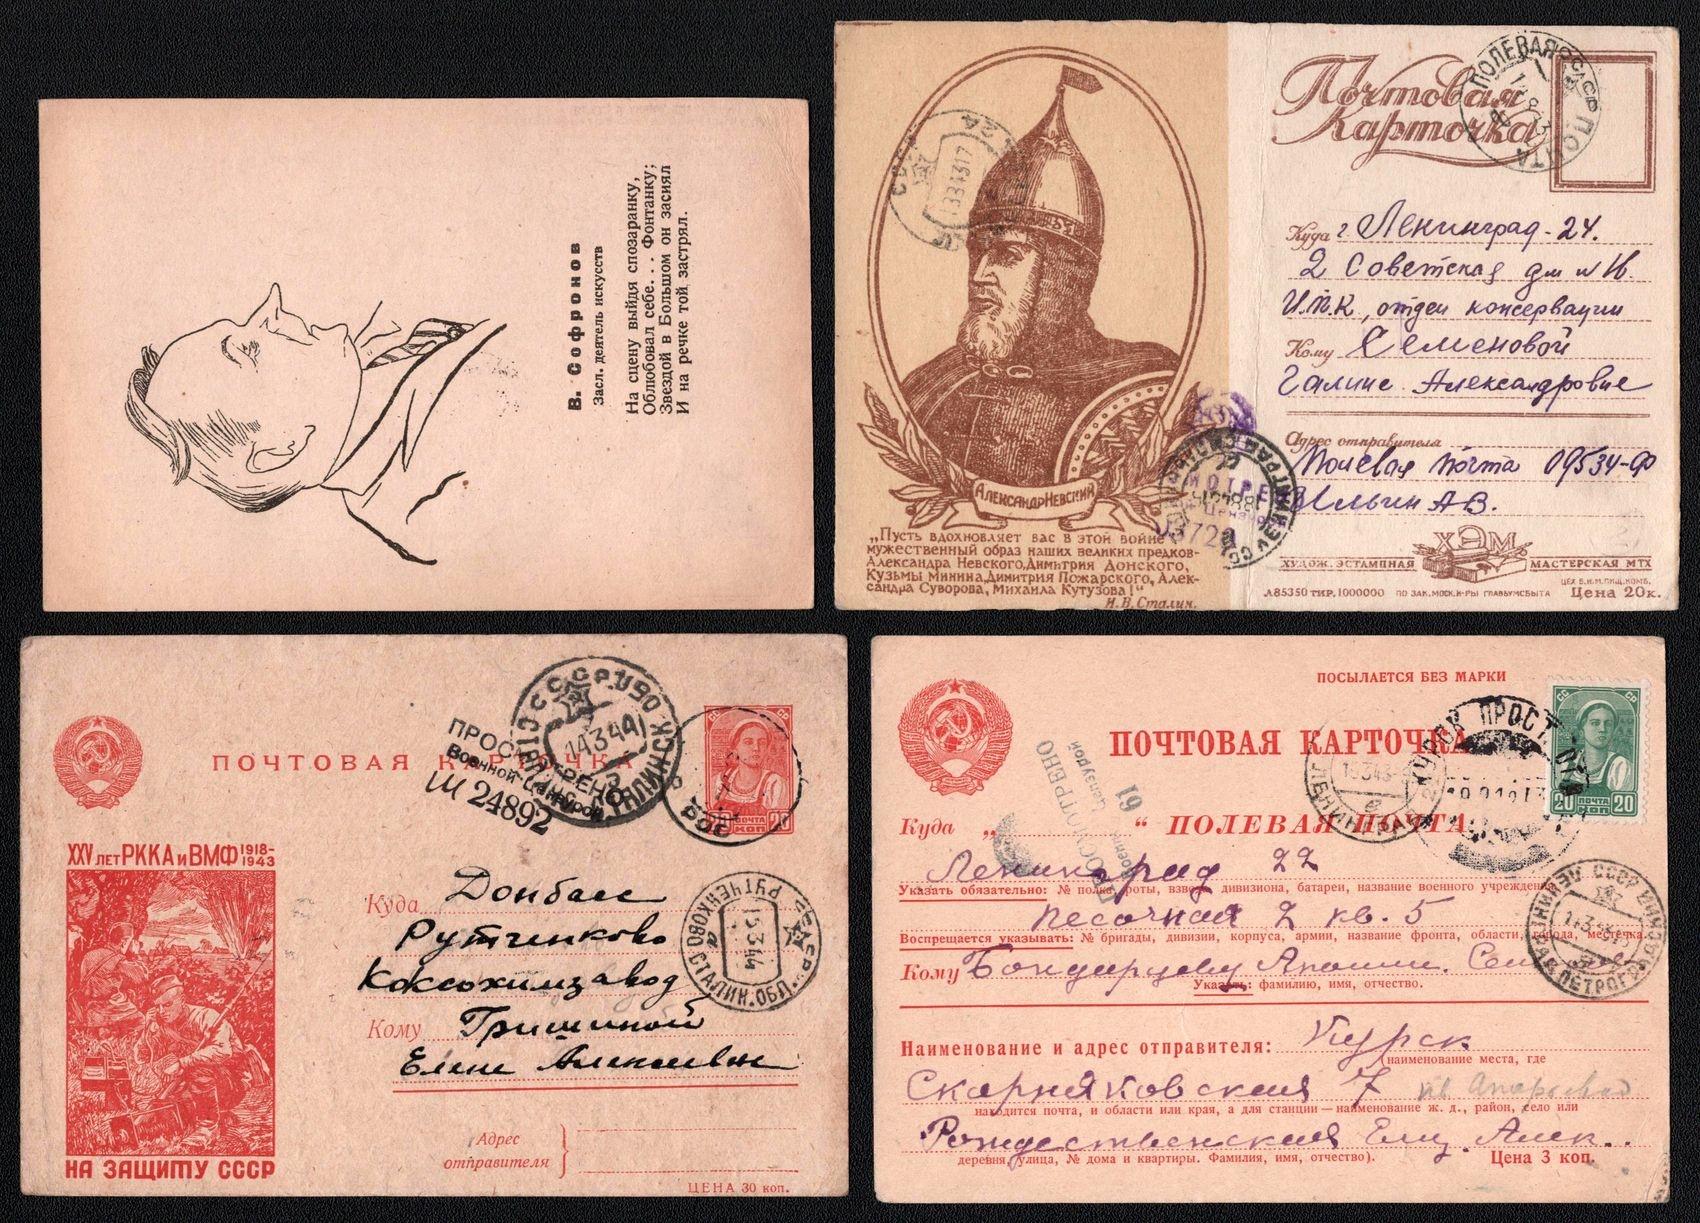 В. Софронов
Засл. деятель искусств
На сцену выйдя спозаранку,
Облюбовал себе... Фонтанку;
Звездой в Большом он засиял
И на речке той застрял.
Почтовая
Карточка
ПОЛЕВАЯ ПОЧТА
Куда г. Ленинград - 24.
2 Советская
отдел консервации
Кому Семеновой
Галине Александровне
Адрес отправителя
Полевая почта 09534-Ф
Ильин А В.
АЛЕКСАНДР НЕВСКИЙ
„Пусть вдохновляет вас в этой войне
мужественный образ наших великих предков-
Александра Невского, Димитрия Донского,
Кузьмы Минина, Димитрия Пожарского, Алек-
сандра Суворова, Михаила Кутузова!"
И. В. Сталин.
ХЭМ
ХУДОЖ. ЭСТАМПНАЯ МАСТЕРСКАЯ МТХ
Л85350 ТИР. 1000000 ПО ЗАК. МОСК. К-РЫ ГЛАВБУМСБЫТА Цена 20к.
ПОЧТОВАЯ КАРТОЧКА
ПРОСМОТРЕНО
Военной Цензурой
Ш 24892
14344
20 ПОЧТА 20
КОП
XXV ЛЕТ РККА и ВМФ 1918-1943
Куда Донбасс
Рутченково
Коксохимзавод
Кому Гришиной
Елене Алексеевне
РУТЧЕНКОВО СТАЛИН. ОБЛ.
15344
Адрес
отправителя
НА ЗАЩИТУ СССР
ЦЕНА 30 коп.
ПОСЫЛАЕТСЯ БЕЗ МАРКИ
СС СР
ПОЧТОВАЯ КАРТОЧКА
20 ПОЧТА КОП 20
ПРОСМОТРЕНО
Военной Цензурой
61
Куда „ “ ПОЛЕВАЯ ПОЧТА
Ленинград 22
Указать обязательно: № полка, роты, взвода, дивизиона, батареи, название военного учреждения
Песочная 2 кв. 5
Воспрещается указывать: № бригады, дивизии, корпуса, армии, название фронта, области, города, местечка.
Кому
Указать: фамилию, имя, отчество.
Наименование и адрес отправителя: Курск
наименование места, где
Скорняковская 7
находится почта, и области или края, а для станции — наименование ж. д., район, село или
Рождественская Елиз. Алек..
деревня, улица, № дома и квартиры. Фамилия, имя, отчество).
Цена 3 коп.